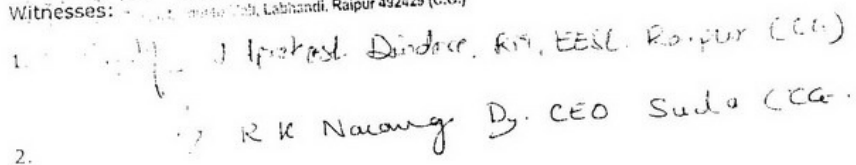 Witnesses: Labhandi, Raipur 492429 (C.G.)
1. Dindore, RM, EESL. Raipur (CG)
R K Narang Dy. CEO Suda (CG.
2.